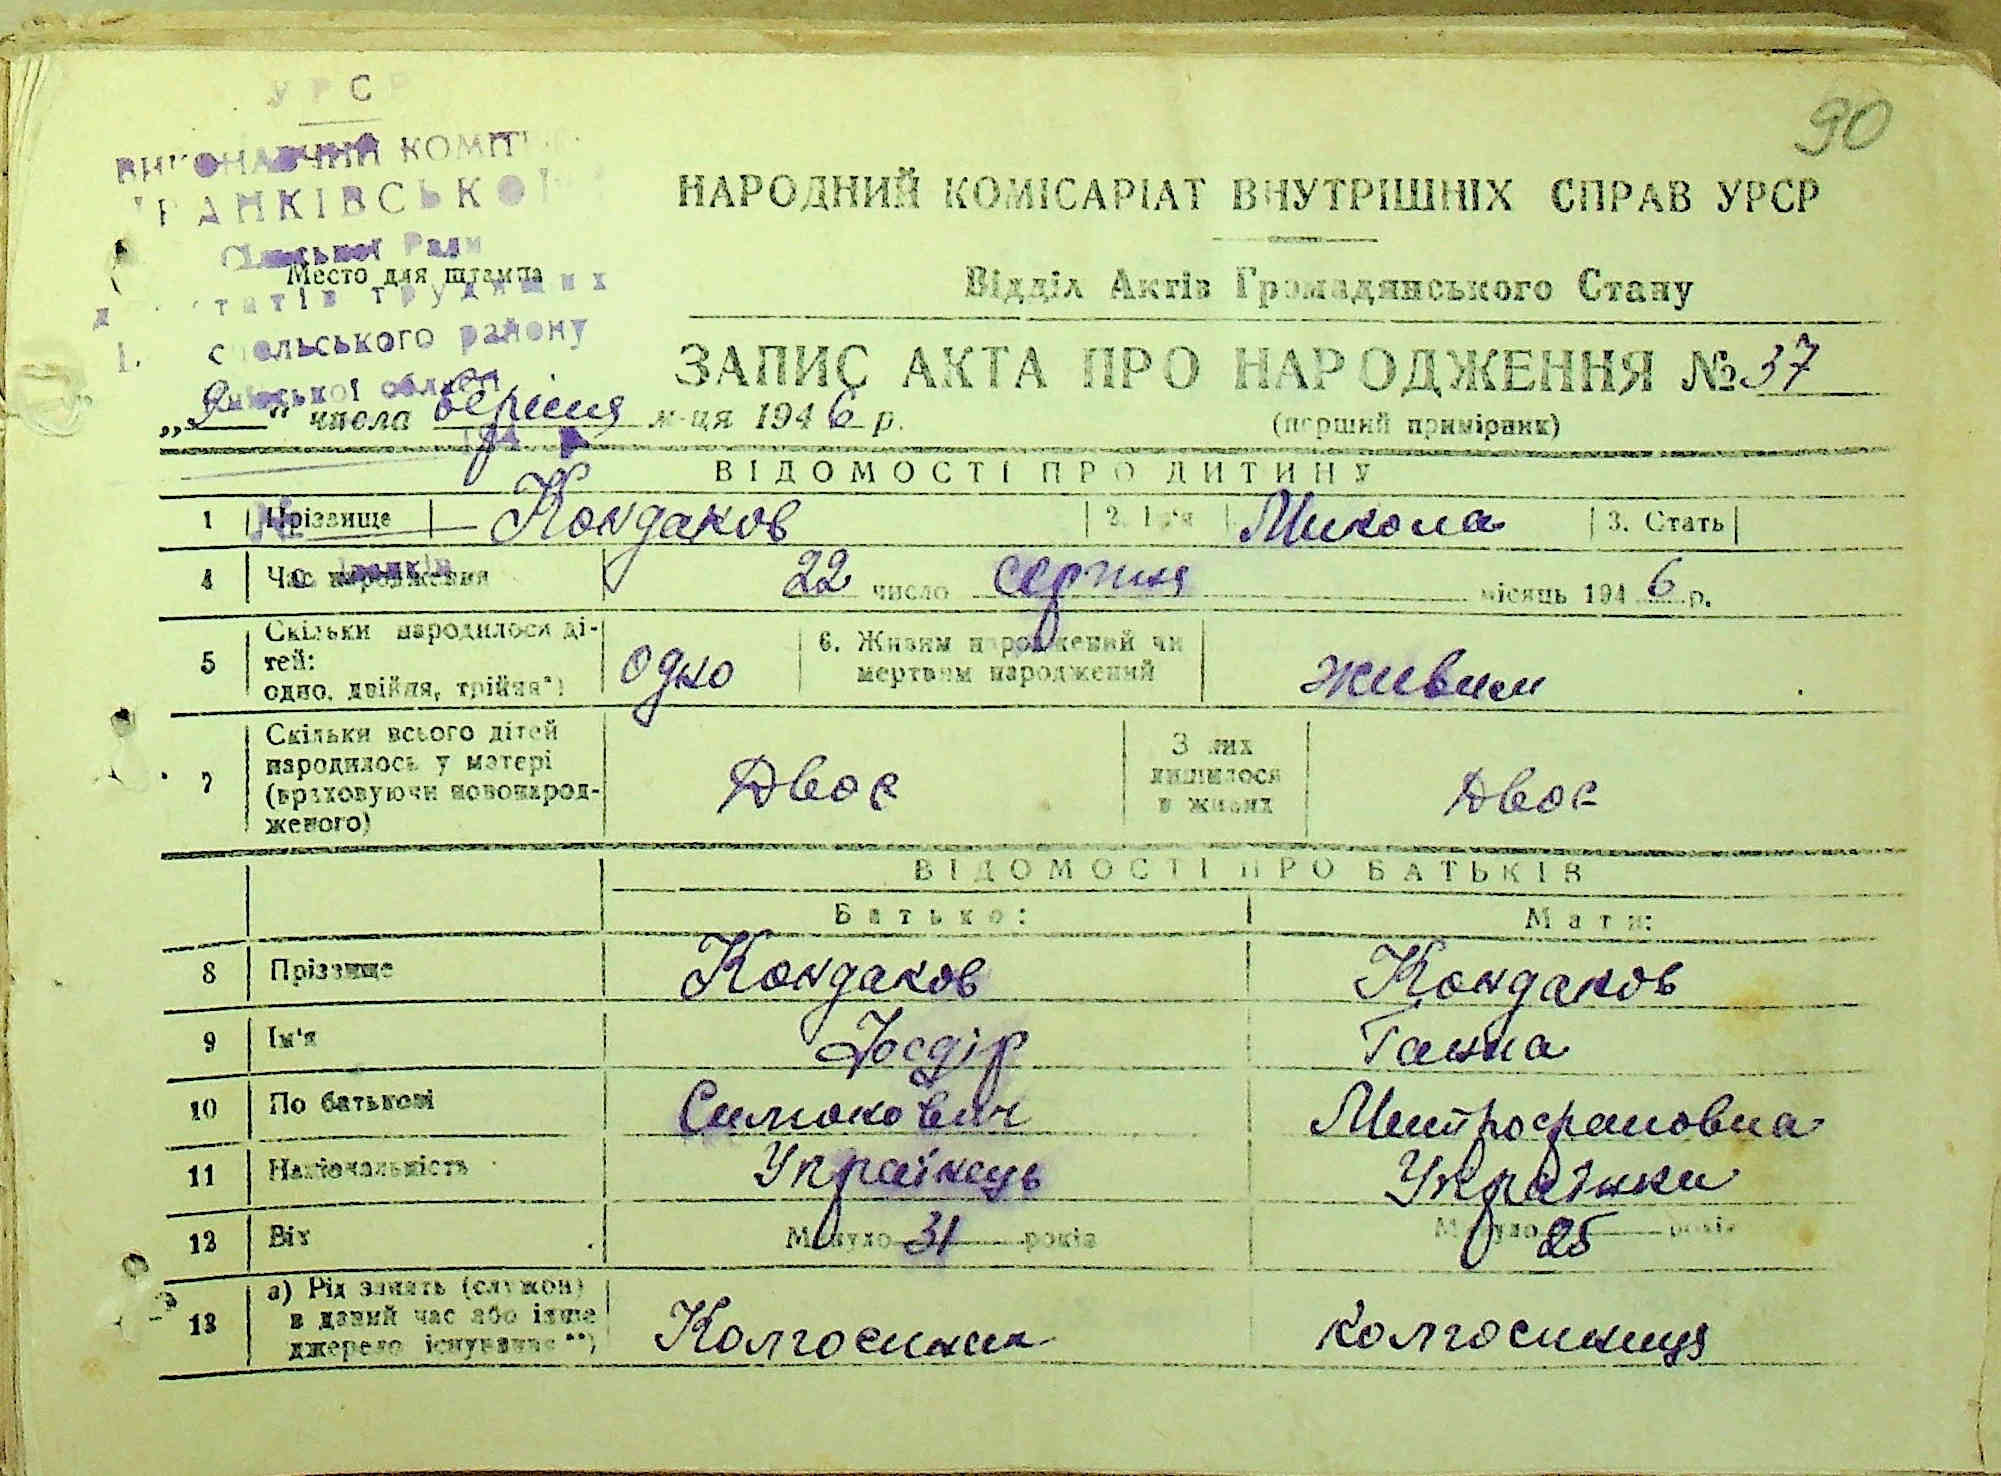 90
УРСР
ВИКОНАВЧИЙ
Сільської Ради
Место для штампа
району
НАРОДНИЙ КОМІСАРІАТ ВНУТРІШНІХ СПРАВ УРСР
Відділ Актів Громадянського Стану
ЗАПИС АКТА ПРО НАРОДЖЕННЯ № 37
(перший примірник)
числа вересня м-ця 1946 р.
ВІДОМОСТІ ПРО ДИТИНУ
1 Прізвище Кондаков 2. Ім'я Микола 3. Стать
4 Час народження 22 число серпня місяць 1946 р.
5 Скільки народилося ді-
тей:
одно, двійня, трійня*)
одно
6. Живим народжений чи
мертвим народжений
живим
7 Скільки всього дітей
народилось у матері
(враховуючи новонарод-
женого)
Двоє
З них
лишилося
в живих
Двоє
ВІДОМОСТІ ПРО БАТЬКІВ
Батько: Мати:
8 Прізвище Кондаков Кондаков
9 Ім'я Федір Ганна
10 По батькові Митрофановна
11 Національність Українець Українка
12 Вік Минуло 31 років Минуло 25 років
13 а) Рід занять (служби)
в даний час або інше
джерело існування**)
Колгоспник колгоспниця